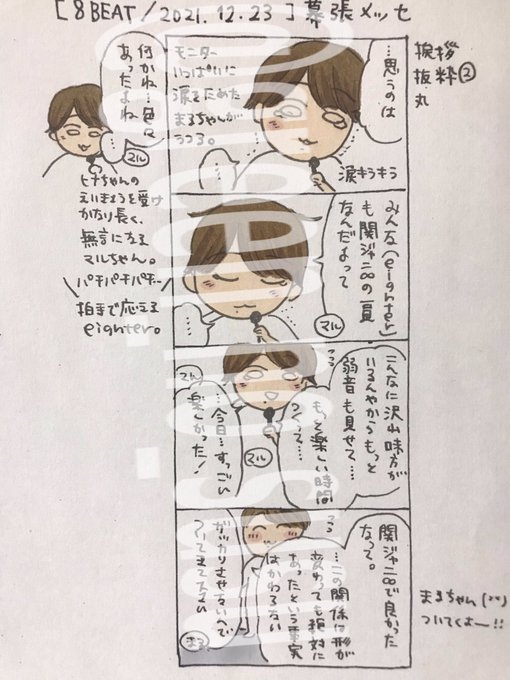 [8BEAT/2021.12.23]幕張メッセ
挨拶
抜粋②
丸
…思うのは
モニター
いっぱいに
涙をためた
まるちゃんが
うつる。
涙キラキラ
何かね…色々
あったよね
…
マル
ヒナちゃんの
えいきょうを受け
かなり長く、
無言になる
マルちゃん。
パチパチパチ…
拍手で応える
eighter。
みんな(eighter)
も関ジャニ∞の一員
なんだよって
マル
…
こんなに沢山味方が
いるんやからもっと
弱音も見せて…
もっと楽しい時間
つくって…
マル
…今日…すっごい
楽しかった!
マル
関ジャニ∞で良かった
なって。
…この関係は形が
変わっても絶対に
あったという事実
はかわらない
ガッカリさせないんで
ついてきて下さい
まる
まるちゃん
ついてくよー!!